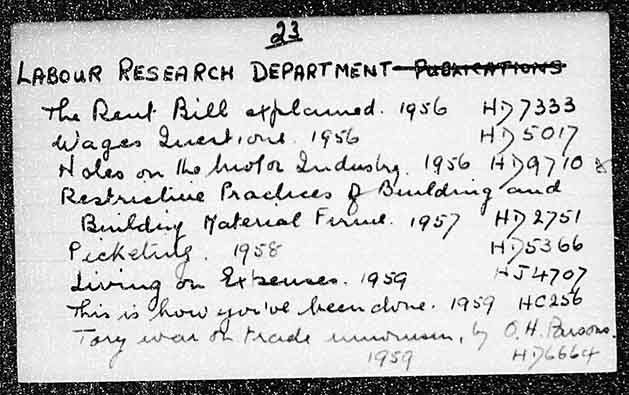 23
LABOUR RESEARCH DEPARTMENT - PUBLICATIONS
The Rent Bill explained. 1956 HD7333
Wages Questions. 1956 HD5017
Notes on the Motor Industry. 1956 HD9710
Restrictive Practices of Building and
Building Material Firms. 1957 HD2751
Picketing. 1958 HD5366
Living on Expenses. 1959 HJ4707
This is how you've been done. 1959 HC256
Tory war on trade unionism, by O.H. Parsons.
1959 HD6664